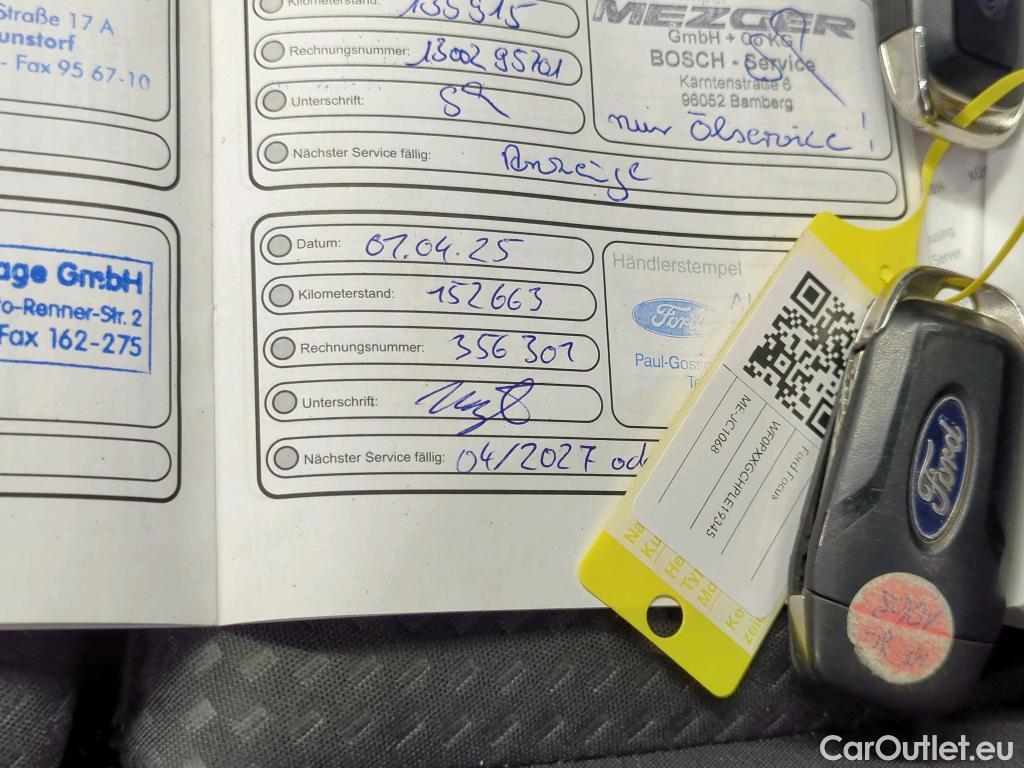 Straße 17 A
unstorf
- Fax 95 67-10
age GmbH
o-Renner-Str. 2
Fax 162-275
Kilometerstand:
Rechnungsnummer: 1300295701
Unterschrift:
Nächster Service fällig: Anzeige
MEZGER
GmbH + Co KG
BOSCH - Service
Kärntenstraße 6
96052 Bamberg
nur Ölservice!
Datum: 01.04.25
Kilometerstand: 152663
Rechnungsnummer: 356301
Unterschrift:
Nächster Service fällig: 04/2027 od
Händlerstempel
Ford
Paul-Goss
Te
Ford Focus
WF0PXXGCHPLE19345
ME-JC1068
Na
Ku
He
Typ
Mo
Ke
zei
Ford
CarOutlet.eu